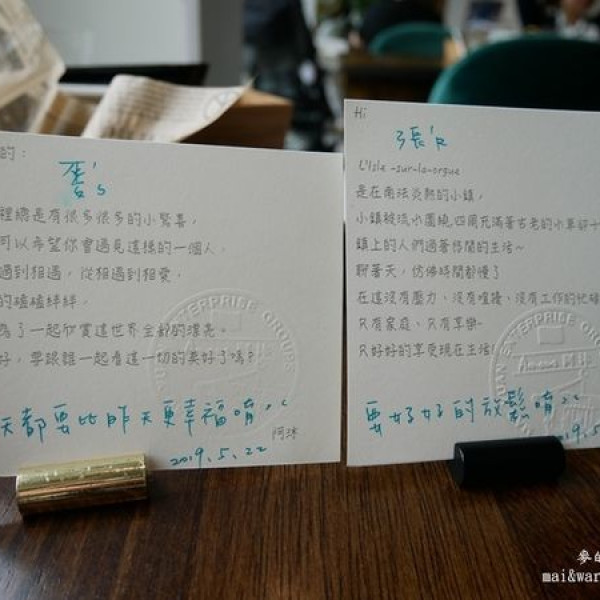 的：
蛋's
裡總是有很多很多的小驚喜，
可以希望你會遇見這樣的一個人，
遇到相遇，從相遇到相愛，
的磕磕絆絆，
為了一起欣賞這世界全部的漂亮。
好，要跟誰一起看這一切的美好了嗎？
天都要比昨天更幸福唷
阿沐
2019.5.22
Hi
張'R
L'Isle-sur-la-orgue
是在南法炎熱的小鎮，
小鎮被流水圍繞，四周充滿著古老的水車卻十
鎮上的人們過著悠閒的生活~
聊著天，彷彿時間都慢了
在這沒有壓力、沒有喧擾、沒有工作的忙碌
只有家庭、只有享樂~
只好好的享受現在生活！
要好好的放鬆唷
2019.5
ENTERPRISE GROUPS
AN ENTERPRISE GROUPS
麥的
mai&war